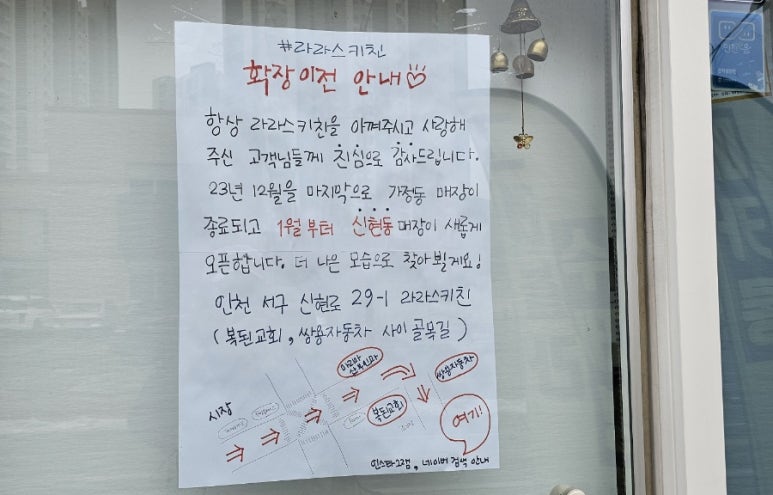 #라라스키친
확장이전 안내♡
항상 라라스키친을 아껴주시고 사랑해
주신 고객님들께 진심으로 감사드립니다.
23년 12월을 마지막으로 가정동 매장이
종료되고 1월부터 신현동 매장이 새롭게
오픈합니다. 더 나은 모습으로 찾아뵐게요!
인천 서구 신현로 29-1 라라스키친
(복된교회, 쌍용자동차 사이 골목길)
산부인과
쌍용자동차
시장
복된교회
여기!
인스타그램, 네이버 검색 안내